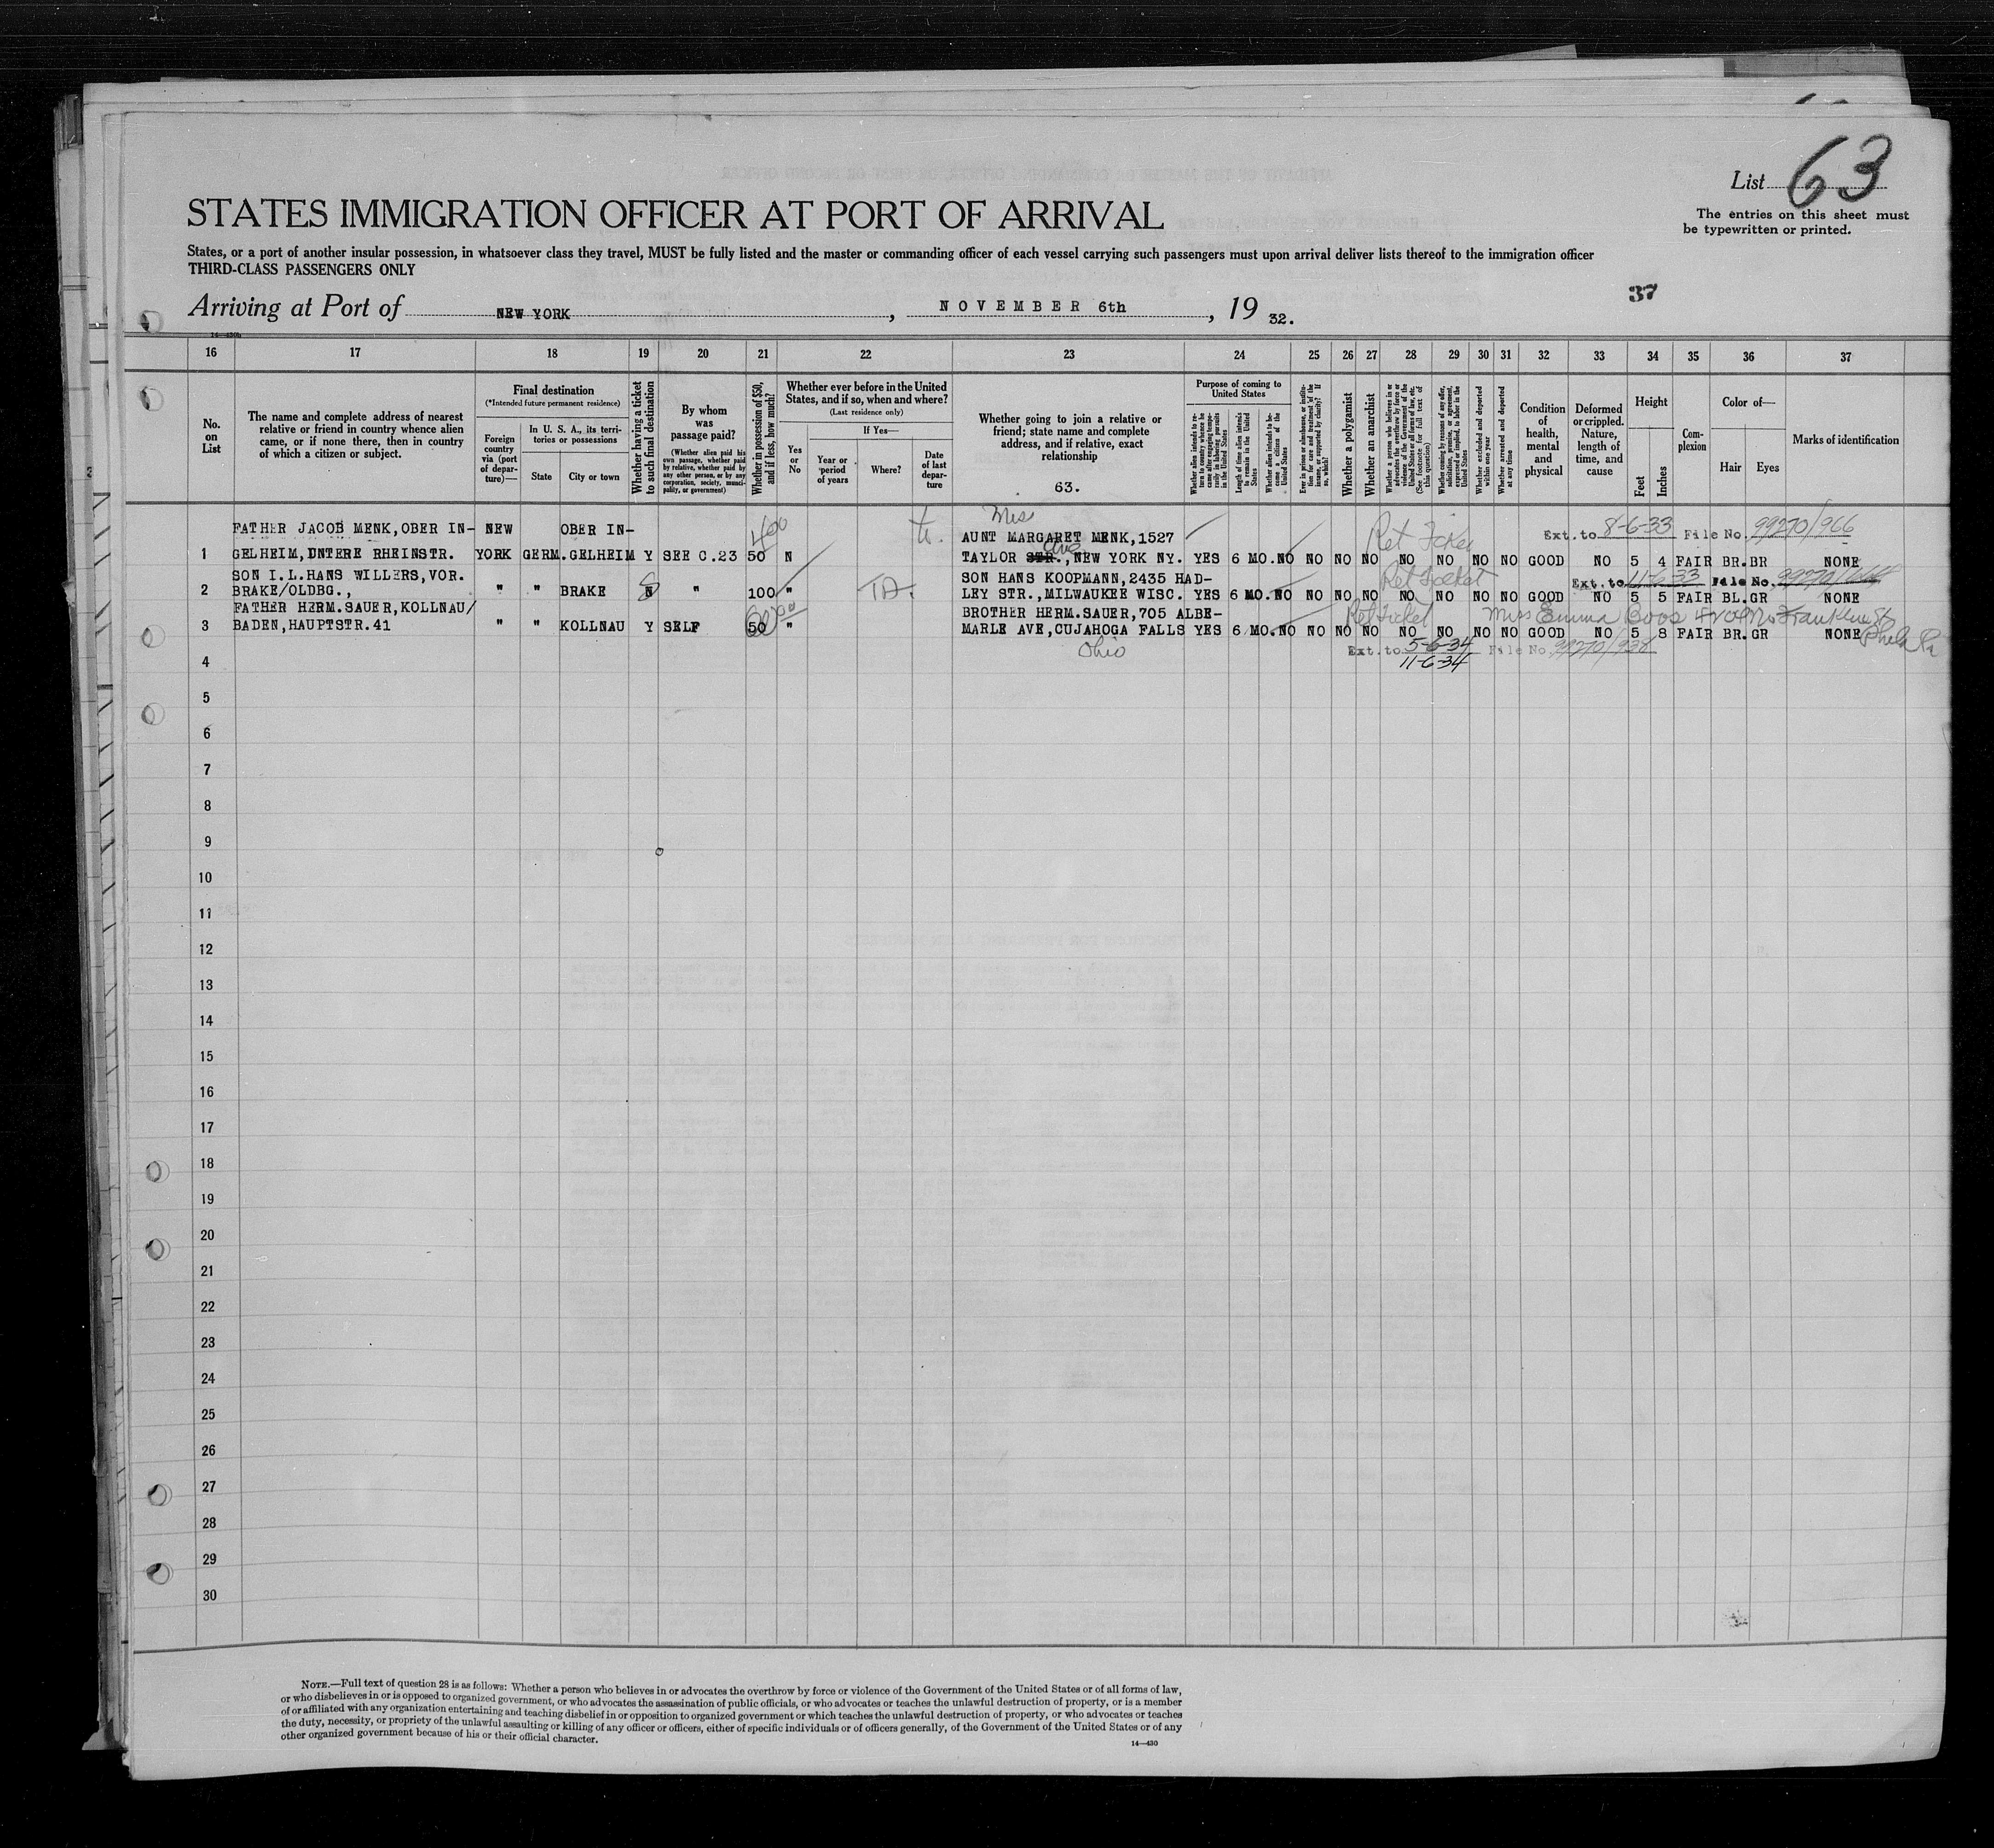 List 63
The entries on this sheet must
be typewritten or printed.
STATES IMMIGRATION OFFICER AT PORT OF ARRIVAL
States, or a port of another insular possession, in whatsoever class they travel, MUST be fully listed and the master or commanding officer of each vessel carrying such passengers must upon arrival deliver lists thereof to the immigration officer
THIRD-CLASS PASSENGERS ONLY
37
Arriving at Port of NEW YORK, NOVEMBER 6th, 19 32.
16 17 18 19 20 21 22 23 24 25 26 27 28 29 30 31 32 33 34 35 36 37
No. on List
The name and complete address of nearest
relative or friend in country whence alien
came, or if none there, then in country
of which a citizen or subject.
Final destination
(*Intended future permanent residence)
Foreign country via (port of departure)—
In U. S. A., its territories or possessions
State
City or town
Whether having a ticket to such final destination
By whom was passage paid?
(Whether alien paid his own passage, whether paid by relative, whether paid by any other person, or by any corporation, society, municipality, or government)
Whether in possession of $50, and if less, how much?
Whether ever before in the United States, and if so, when and where?
(Last residence only)
Yes or No
If Yes—
Year or period of years
Where?
Date of last departure
Whether going to join a relative or
friend; state name and complete
address, and if relative, exact
relationship
63.
Purpose of coming to United States
Whether alien intends to return to country whence he came after engaging temporarily in laboring pursuits in the United States
Length of time alien intends to remain in the United States
Whether alien intends to become a citizen of the United States
Ever in prison or almshouse, or institution for care and treatment of the insane, or supported by charity? If so, which?
Whether a polygamist
Whether an anarchist
Whether a person who believes in or advocates the overthrow by force or violence of the Government of the United States or all forms of law, etc. (See footnote for full text of this question)
Whether coming by reasons of any offer, solicitation, promise, or agreement, expressed or implied, to labor in the United States
Whether excluded and deported within one year
Whether arrested and deported at any time
Condition of health, mental and physical
Deformed or crippled. Nature, length of time, and cause
Height
Feet
Inches
Complexion
Color of—
Hair
Eyes
Marks of identification
Mis
FATHER JACOB MENK,OBER IN- NEW OBER IN- 400 AUNT MARGARET MENK,1527 Ret Ticket Ext. to 8-6-33 File No. 99270/966
1 GELHEIM,UNTERE RHEINSTR. YORK GERM.GELHEIM Y SEE C.23 50 N TAYLOR STR. Ave,NEW YORK NY. YES 6 MO.NO NO NO NO NO NO NO NO GOOD NO 5 4 FAIR BR.BR NONE
SON I.L.HANS WILLERS,VOR. SON HANS KOOPMANN,2435 HAD- Ret Ticket Ext. to 11-6-33 File No.
2 BRAKE/OLDBG., " " BRAKE N " 100 " LEY STR.,MILWAUKEE WISC. YES 6 MO.NO NO NO NO NO NO NO NO GOOD NO 5 5 FAIR BL.GR NONE
FATHER HERM.SAUER,KOLLNAU/ BROTHER HERM.SAUER,705 ALBE- Ret Ticket Miss Emma Boos Franklin St
3 BADEN,HAUPTSTR.41 " " KOLLNAU Y SELF 50 " MARLE AVE,CUJAHOGA FALLS YES 6 MO.NO NO NO NO NO NO NO NO GOOD NO 5 8 FAIR BR.GR NONE Phila Pa
Ohio Ext. to 5-6-34 File No. 99270/938
4 11-6-34
5
6
7
8
9
10
11
12
13
14
15
16
17
18
19
20
21
22
23
24
25
26
27
28
29
30
NOTE.—Full text of question 28 is as follows: Whether a person who believes in or advocates the overthrow by force or violence of the Government of the United States or of all forms of law,
or who disbelieves in or is opposed to organized government, or who advocates the assassination of public officials, or who advocates or teaches the unlawful destruction of property, or is a member
of or affiliated with any organization entertaining and teaching disbelief in or opposition to organized government or which teaches the unlawful destruction of property, or who advocates or teaches
the duty, necessity, or propriety of the unlawful assaulting or killing of any officer or officers, either of specific individuals or of officers generally, of the Government of the United States or of any
other organized government because of his or their official character.
14—430